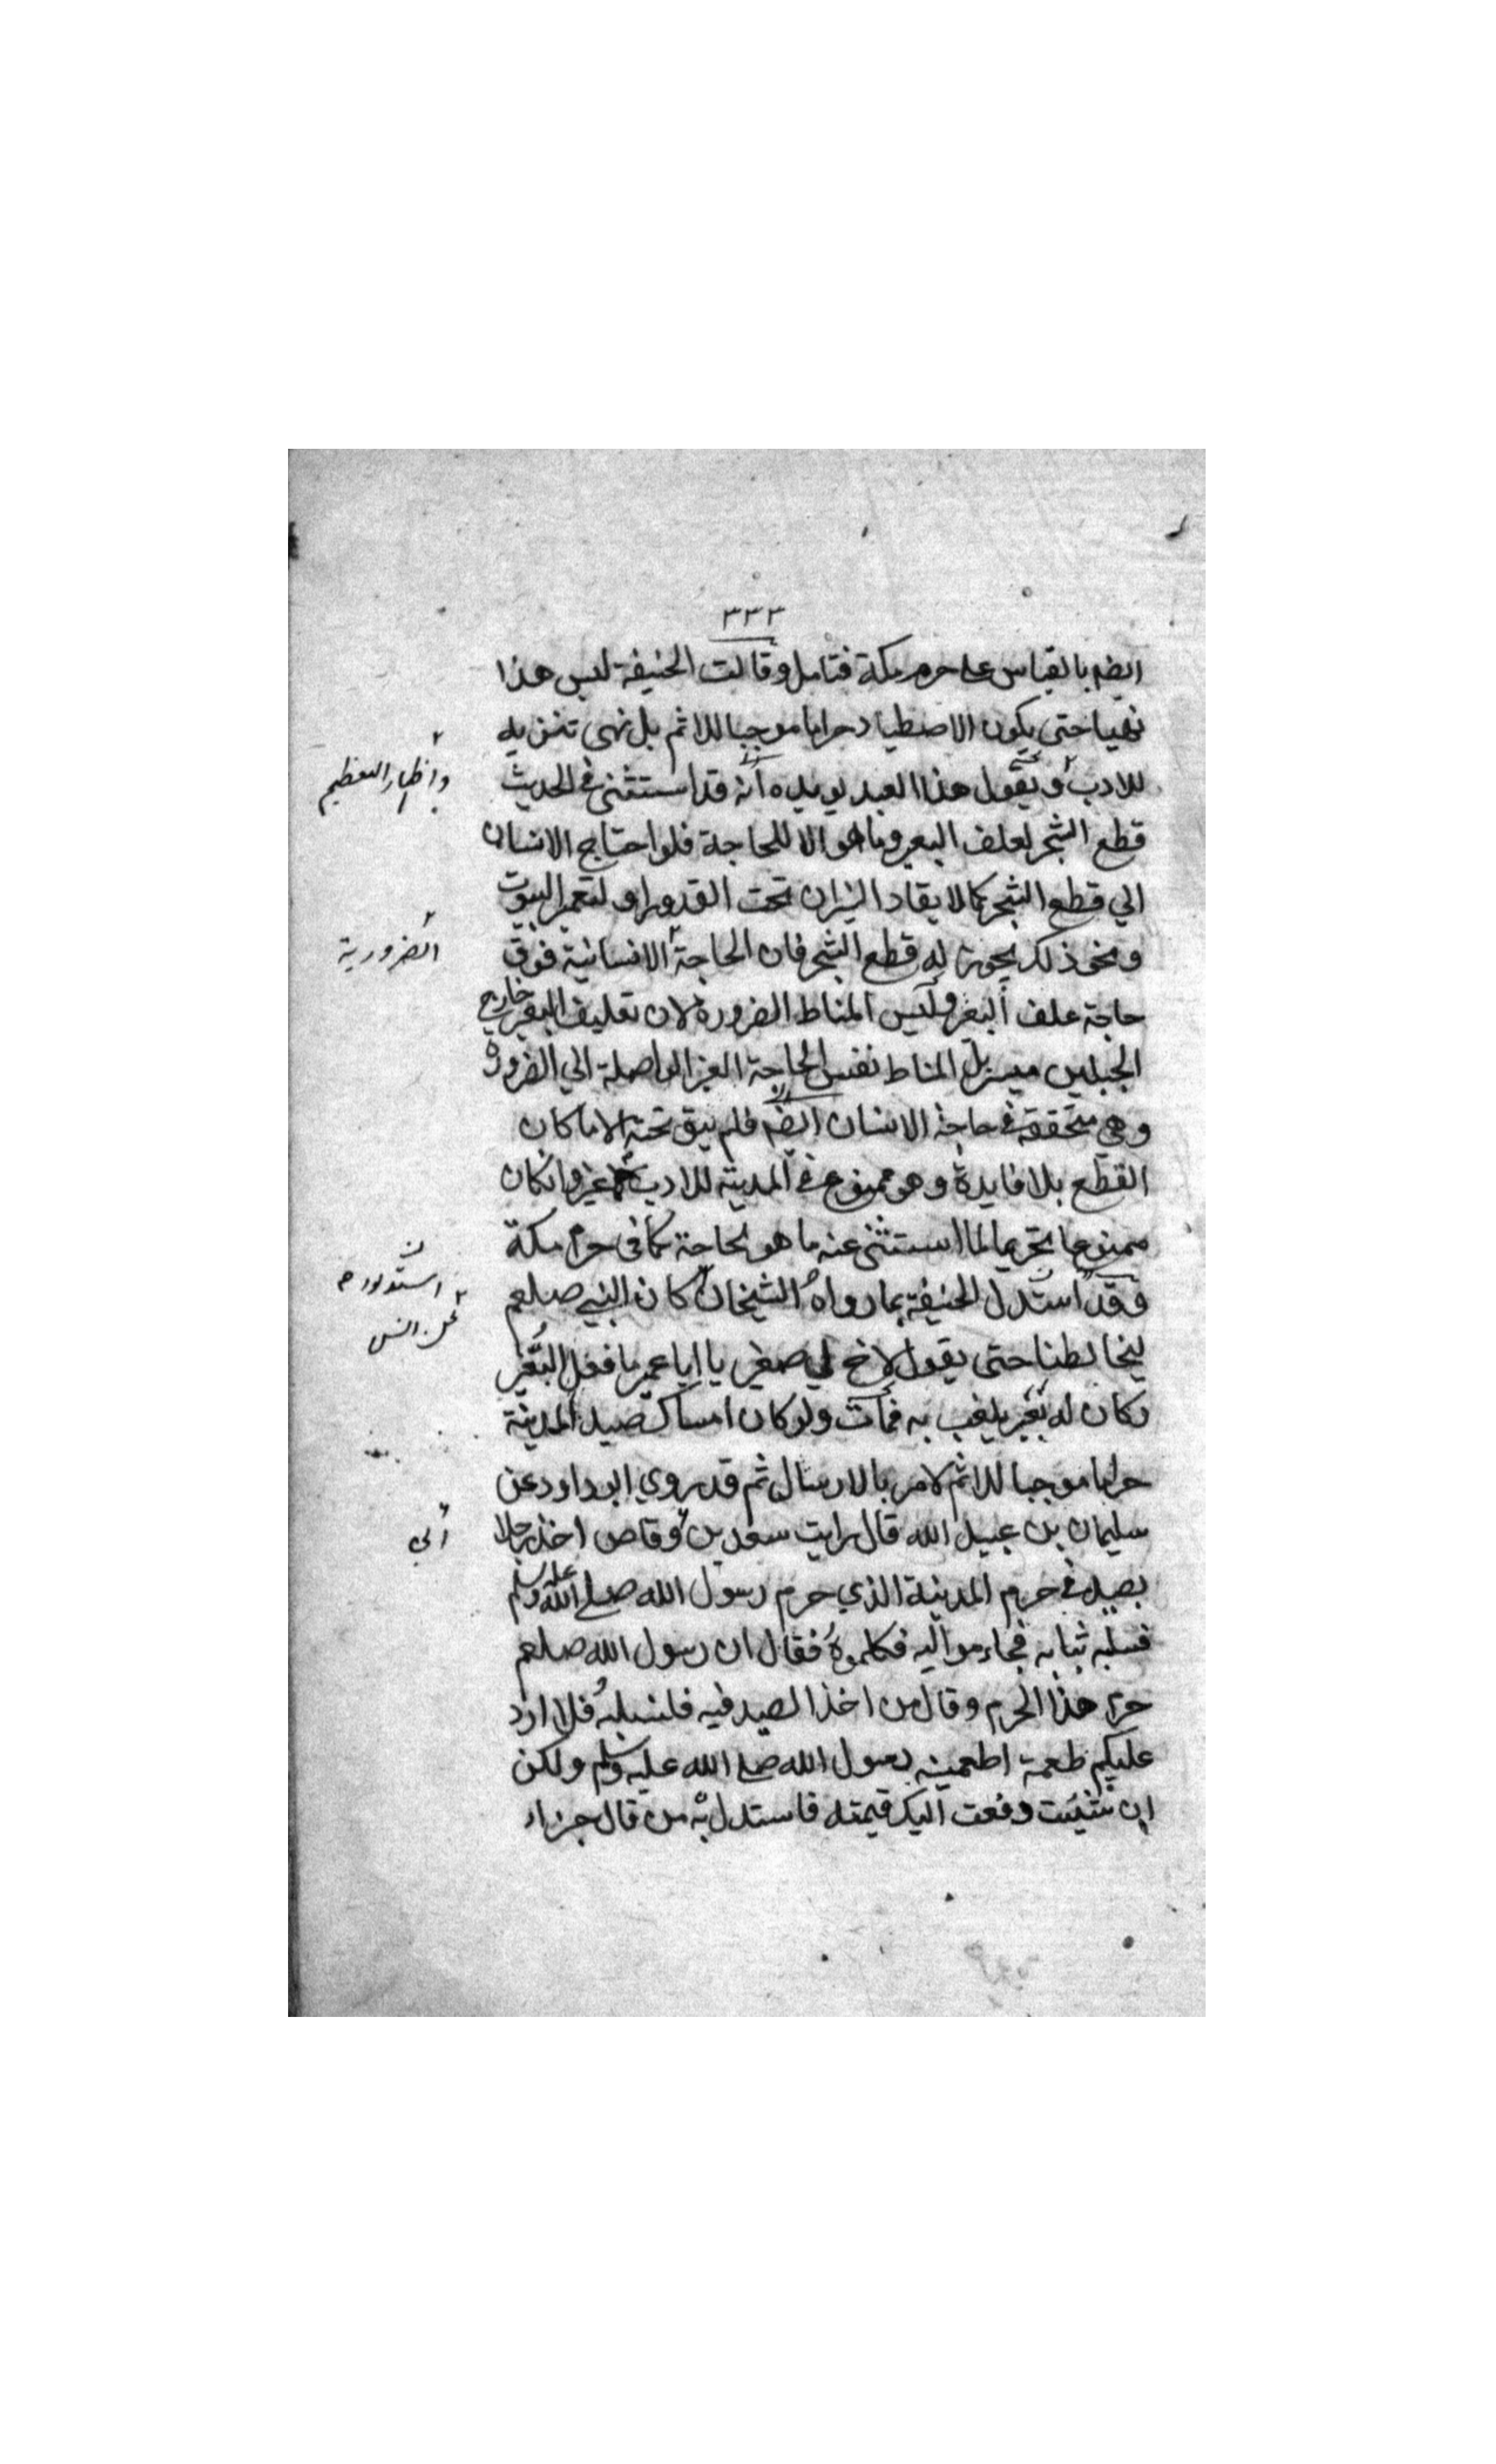 ٣٣٣
ايضه بالقياس على حرم مكة فتامل وقالت الحنيفة ليس هذا
نهيا حتى يكون الاصطياد حراما موجبا للاثم بل نهى تنزيه
للادب ويقول هذا العبد يويده انه قد استثنى في الحديث
واظهار التعظيم
قطع الشجر لعلف البعير وما هو الا للحاجة فلو احتاج الانسان
الي قطع الشجر كالايقاد النيران تحت القدور او لتعمير البيوت
ونحو ذلك يجوز له قطع الشجر فان الحاجة الانسانية فوق
الضرورية
حاجة علف البعير وليس المناط الضرورة لان تعليف البعير خارج
الجبلين ميسر بل المناط نفس الحاجة الغير الواصلة الي الضرورة
وهي متحققة في حاجة الانسان ايضه فلم يبق تحته الا ما كان
القطع بلا فايدة وهو ممنوع في المدينه للادب لا غير وان كان
ممنوعا تحريما لما استثنى عنه ما هو لحاجة كما في حرم مكة
فقد استدل الحنيفة بما رواه الشيخان كان النبي صلعم
استدلوا
عن انس
ليخالطنا حتى يقول لاخ لي صغير يا ابا عمير ما فعل النغير
وكان له نغير يلعب به فمات ولو كان امساك صيد المدينة
حراما موجبا للاثم لامر بالارسال ثم قد روي ابو داود عن
سليمان بن عبيد الله قال رايت سعد بن وقاص اخذ رجلا
ابي
يصيد في حرم المدينة الذي حرم رسول الله صلى الله عليه وسلم
فسلبه ثيابه فجاء مواليه فكلموه فقال ان رسول الله صلعم
حرم هذا الحرم وقال من اخذ الصيد فيه فلسلبه فلا ارد
عليكم طعمة اطعمنيه رسول الله صلى الله عليه وسلم ولكن
ان شئيت دفعت اليك قيمته فاستدل به من قال جزاء